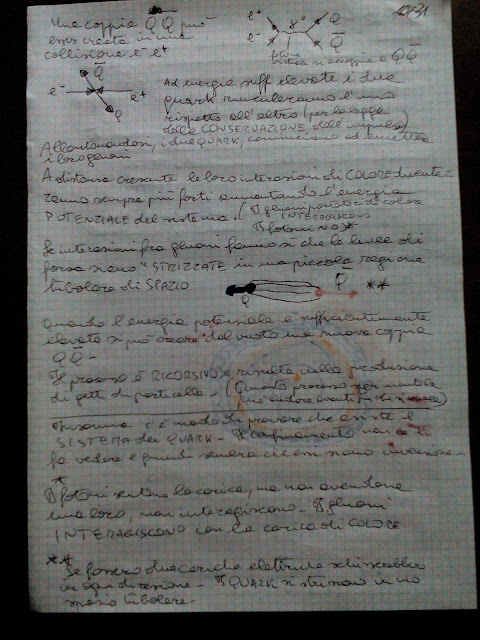 Una coppia Q Q̄ può
esser creata in una
collisione e⁻ e⁺
e⁺ γ* Q
e⁻ Q̄
fotone
virtuale si accoppia a Q Q̄
Q̄
e⁻ e⁺
Q
Ad energie suff. elevate i due
quark rinculeranno l'uno
rispetto all'altro (per la legge
della CONSERVAZIONE dell'impulso)
Allontanandosi, i due QUARK, cominciano ad emettere
i loro gluoni
A distanza crescente le loro interazioni di COLORE divente-
ranno sempre più forti aumentando l'energia
POTENZIALE del sistema. (I gluoni portatori di colore
INTERAGISCONO
I fotoni NO*
Le interazioni fra gluoni fanno sì che le linee di
forza siano "STRIZZATE" in una piccola regione
tubolare di SPAZIO
Q Q̄ **
Quando l'energia potenziale è sufficientemente
elevata si può creare dal vuoto una nuova coppia
Q Q̄ -
Il processo è RICORSIVO e risulta nella produzione
di getti di particelle - (Questo processo per
andare avanti
Insomma c'è modo di provare che esiste il
SISTEMA dei QUARK - Il confinamento non ce li
fa vedere e quindi sembra che essi siano invenzione -
*
I fotoni sentono la carica, ma non avendone
una loro, non interagiscono - I gluoni
INTERAGISCONO con la carica di COLORE
**
Se fossero due cariche elettriche
in ogni direzione - I QUARK si strizzano in uno
spazio tubolare -